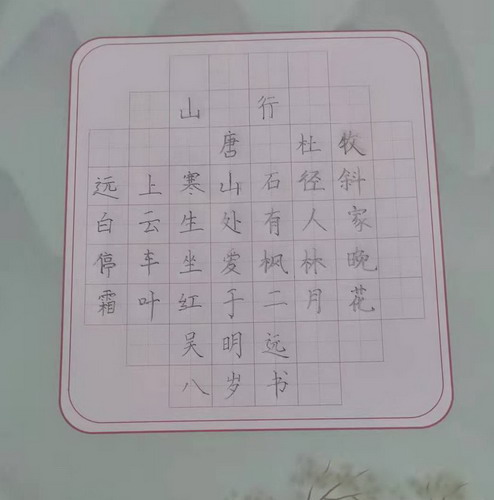 山行
唐 杜牧
远上寒山石径斜
白云生处有人家
停车坐爱枫林晚
霜叶红于二月花
吴明远
八岁书